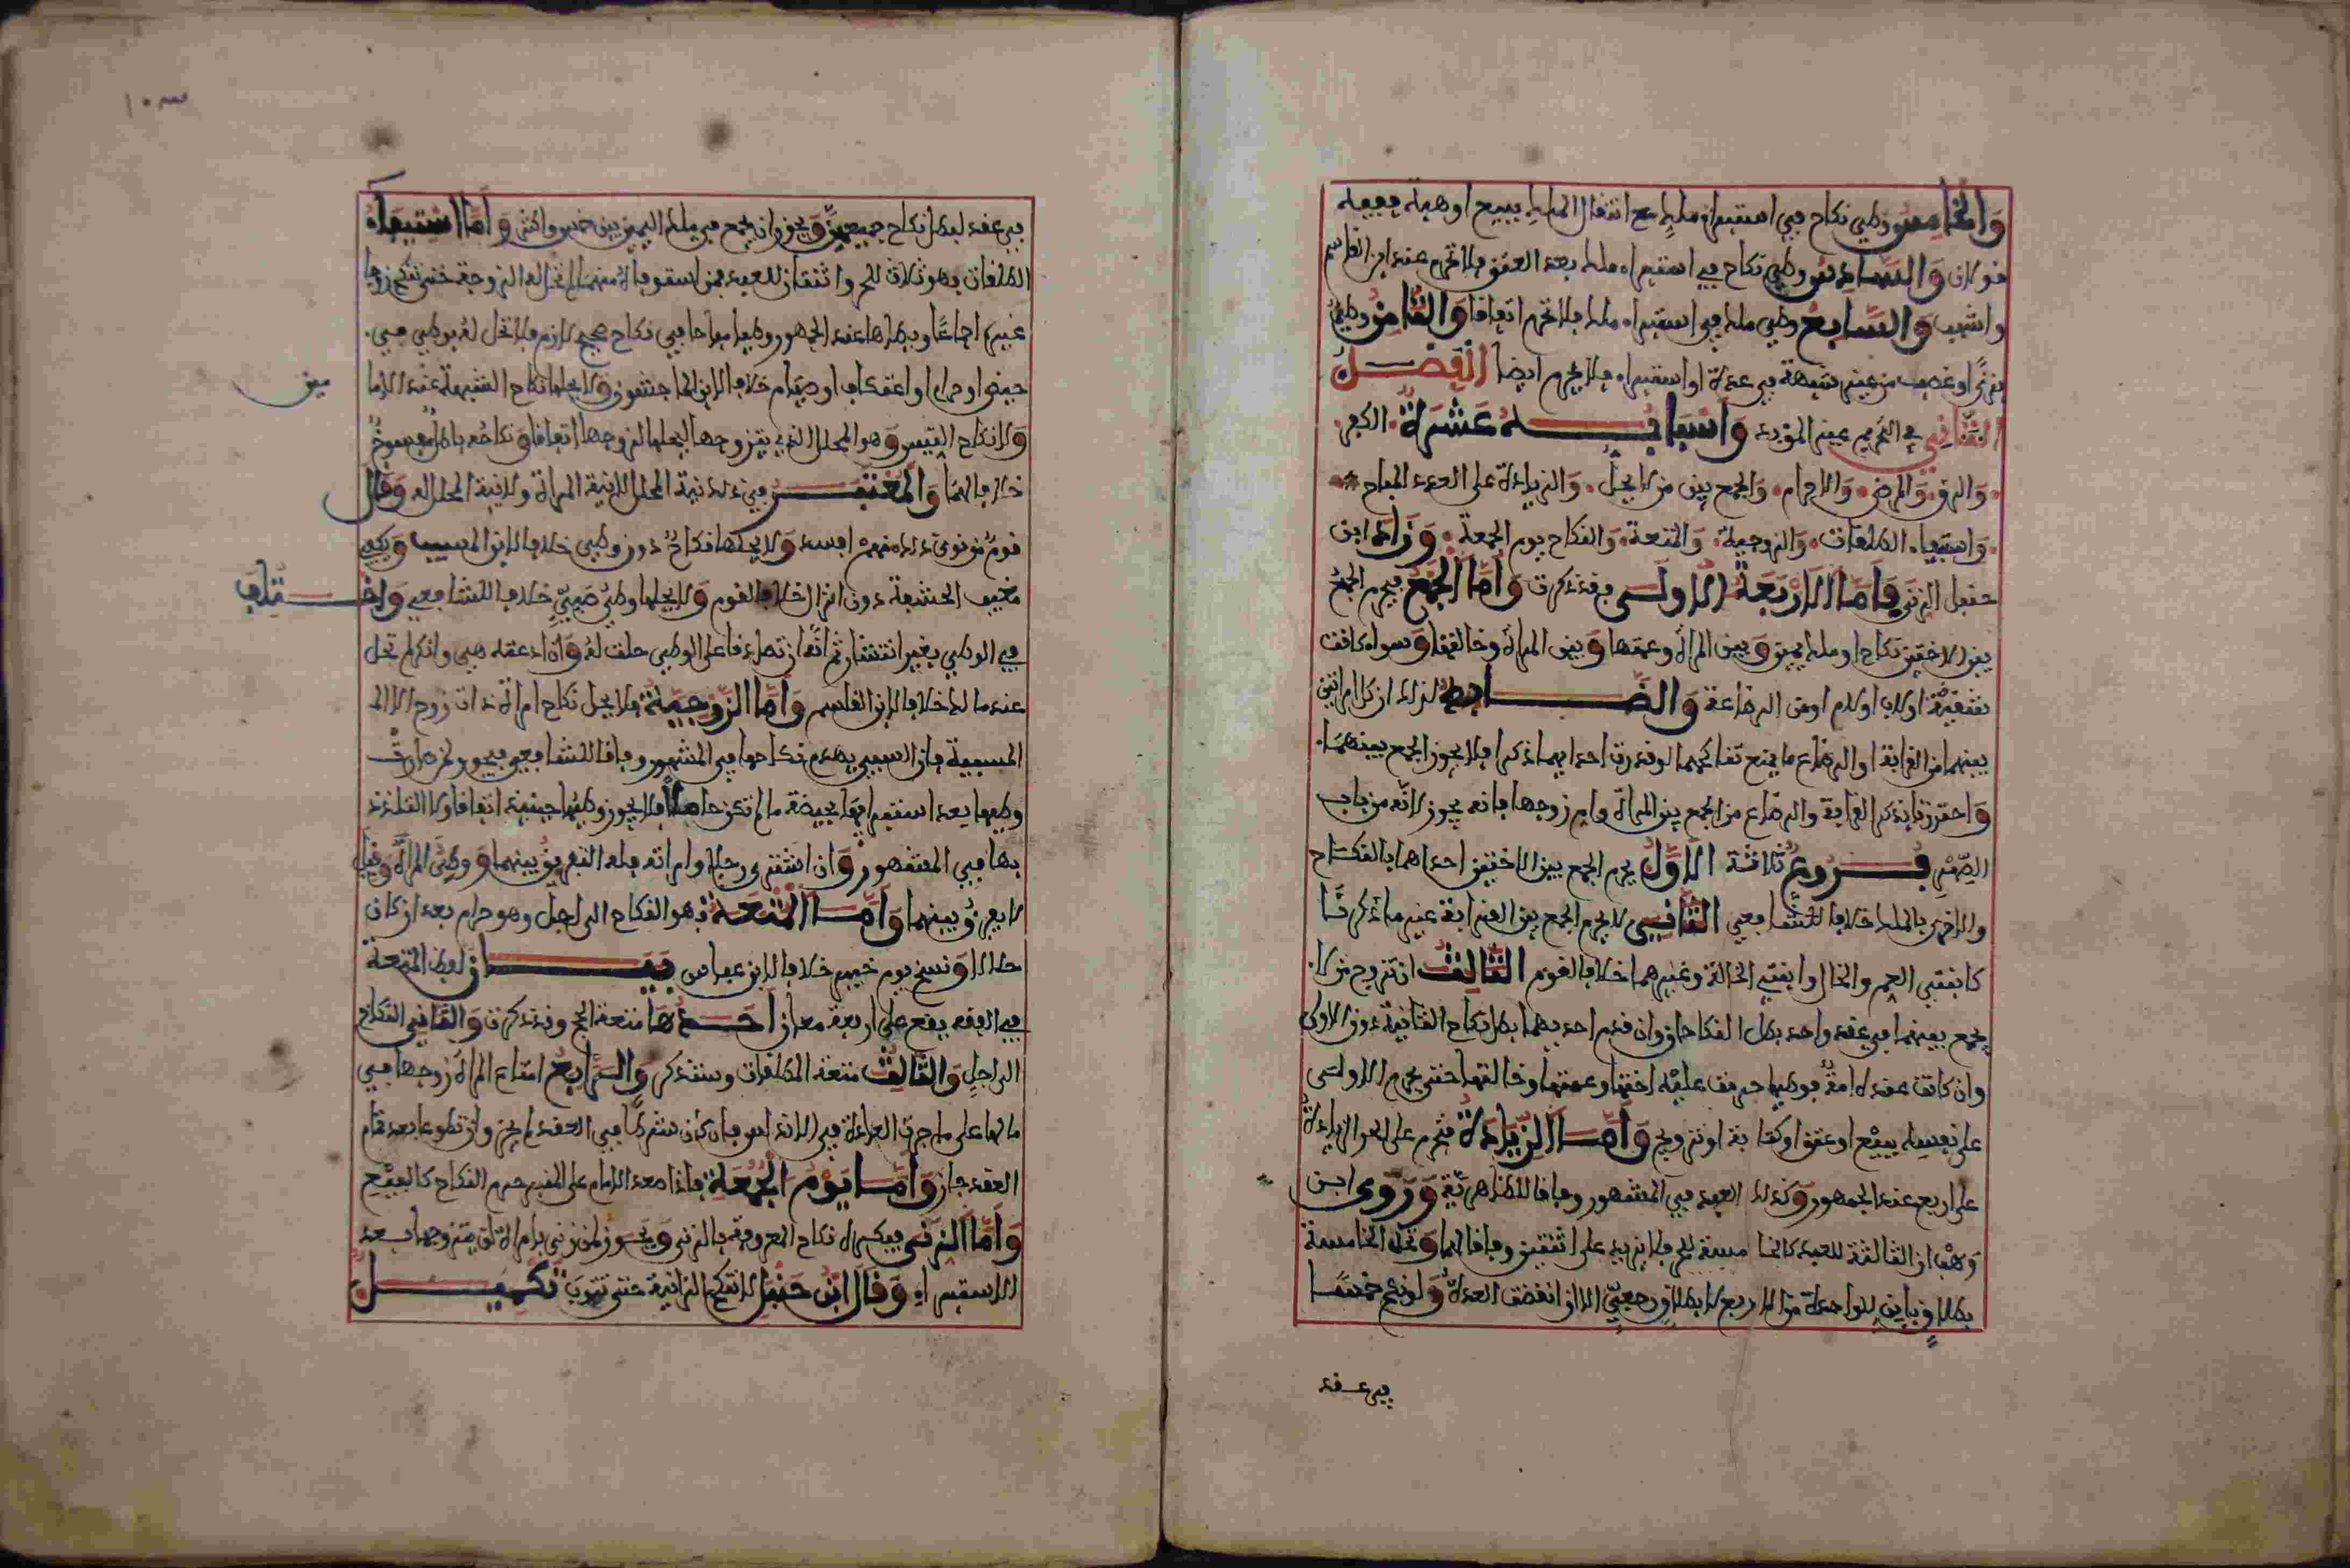 والخامس وطئ نكاح في استبراء ملك مع انتقال الملك ببيع او هبة ففيه
قولان والسادس وطئ نكاح في استبراء ملك بعد العتق فلا تحرم عند ابن القاسم
واشهب والسابع وطئ ملك في استبراء ملك فلا تحرم اتفاقا والثامن وطئ
بزنى او غصب من غير شبهة في عدة او استبراء فلا يحرم ايضا الفصل
الثاني في التحريم غير المؤبد واسبابه عشرة الكفر
والرق والمرض والاحرام والجمع بين من لا يحل والزيادة على العدد المباح
واستيفاء الطلقات والزوجية والمتعة والنكاح يوم الجمعة وزاد ابن
حنبل الزنى فاما الاربعة الاولى فقد ذكرت واما الجمع فيحرم الجمع
بين الاختين بنكاح او ملك يمين وبين المراة وعمتها وبين المراة وخالتها وسواء كانت
شقيقة او لاب او لام او من الرضاعة والضابط لذلك ان كل امراتين
بينهما من القرابة او الرضاع ما يمنع تناكحهما لو قدرت احداهما ذكرا فلا يجوز الجمع بينهما
واحترزنا بذكر القرابة والرضاع من الجمع بين المراة وام زوجها فانه يجوز لانه من باب
الصهر فروع ثلاثة الاول يحرم الجمع بين الاختين احداهما بالنكاح
والاخرى بالملك خلافا للشافعي الثاني لا يحرم الجمع بين القرابة غير ما ذكرنا
كابنتي العم والخال وابنتي الخالة وغيرهما خلافا لقوم الثالث ان تزوج من لا
يجمع بينهما في عقد واحد بطل النكاحان وان قدم احدهما بطل نكاح الثانية دون الاولى
وان كانت عنده امة فوطئها حرمت عليه اختها وعمتها وخالتها حتى يحرم الاولى
على نفسه ببيع او عتق او كتابة او تزويج واما الزيادة فتحرم على الحر الزيادة
على اربع عند الجمهور وكذلك العبد في المشهور وفاقا للظاهرية وروى ابن
وهب ان الثالثة للعبد كالخامسة للحر فلا يزيد على اثنتين وفاقا لهما وتحل الخامسة
بطلاق باين لواحدة من الاربع لا بطلاق رجعي الا ان انقضت العدة ولو نكح خمسا
في عقد
في عقد بطل نكاح جميعهن ويجوز ان يجمع في ملك اليمين بين خمس واكثر واما استيفاء
الطلقات فهو ثلاث للحر واثنتان للعبد فمن استوفاه منهما لم تحل له الزوجة حتى تنكح زوجا
غيره اجماعا ويطاها عند الجمهور وطئا مباحا في نكاح صحيح لازم فلا تحل له بوطئ في
حيض او احرام او اعتكاف او صيام خلافا لابن الماجشون ولا يحلها نكاح الشبهة عند الاما
مين
ولا نكاح التيس وهو المحلل الذي يتزوجها ليحلها لزوجها اتفاقا ونكاحه باطل مفسوخ
خلافا لهما والمعتبر في ذلك نية المحلل لا نية المراة ولا نية المحلل له وقال
قوم من نوى ذلك منهم افسد ولا يحلها نكاح دون وطئ خلافا لابن المسيب ويكفي
مغيب الحشفة دون انزال خلافا لقوم ولا يحلها وطئ صبي خلافا للشافعي واختلف
في الوطئ بغير انتشار ثم انه ان تصادقا على الوطئ حلت له وان ادعته هي وانكر لم تحل
عند مالك خلافا لابن القاسم واما الزوجية فلا يحل نكاح امراة ذات زوج الا
المسبية فان السبي يهدم نكاحها في المشهور وفاقا للشافعي فيجوز لمن صارت
وطئها بعد استبرائها بحيضة ما لم تكن حاملا فلا يجوز وطئها حينئذ اتفاقا ولا التلذذ
بها في المشهور وان اشترى رجلا وامراته فله التفريق بينهما ووطئ المراة وقيل
لا يفرق بينهما واما المتعة فهو النكاح الى اجل وهو حرام بعد ان كان
حلالا ونسخ يوم خيبر خلافا لابن عباس بيان لفظ المتعة
في الفقه يقع على اربعة معان احدها متعة الحج وقد ذكرت والثاني النكاح
الى اجل والثالث متعة المطلقات وستذكر والرابع امتاع المراة زوجها في
مالها على ما جرت العادة في الاندلس فان كان شرطا في العقد لم يجز وان تطوعا بعد تمام
العقد جاز واما يوم الجمعة فاذا صعد الامام على المنبر حرم النكاح كالبيع
واما الزنى فيكره نكاح المعروفة بالزنى ويجوز لمن زنى بامراة ان يتزوجها بعد
الاستبراء وقال ابن حنبل لا تنكح الزانية حتى تتوب تكميل